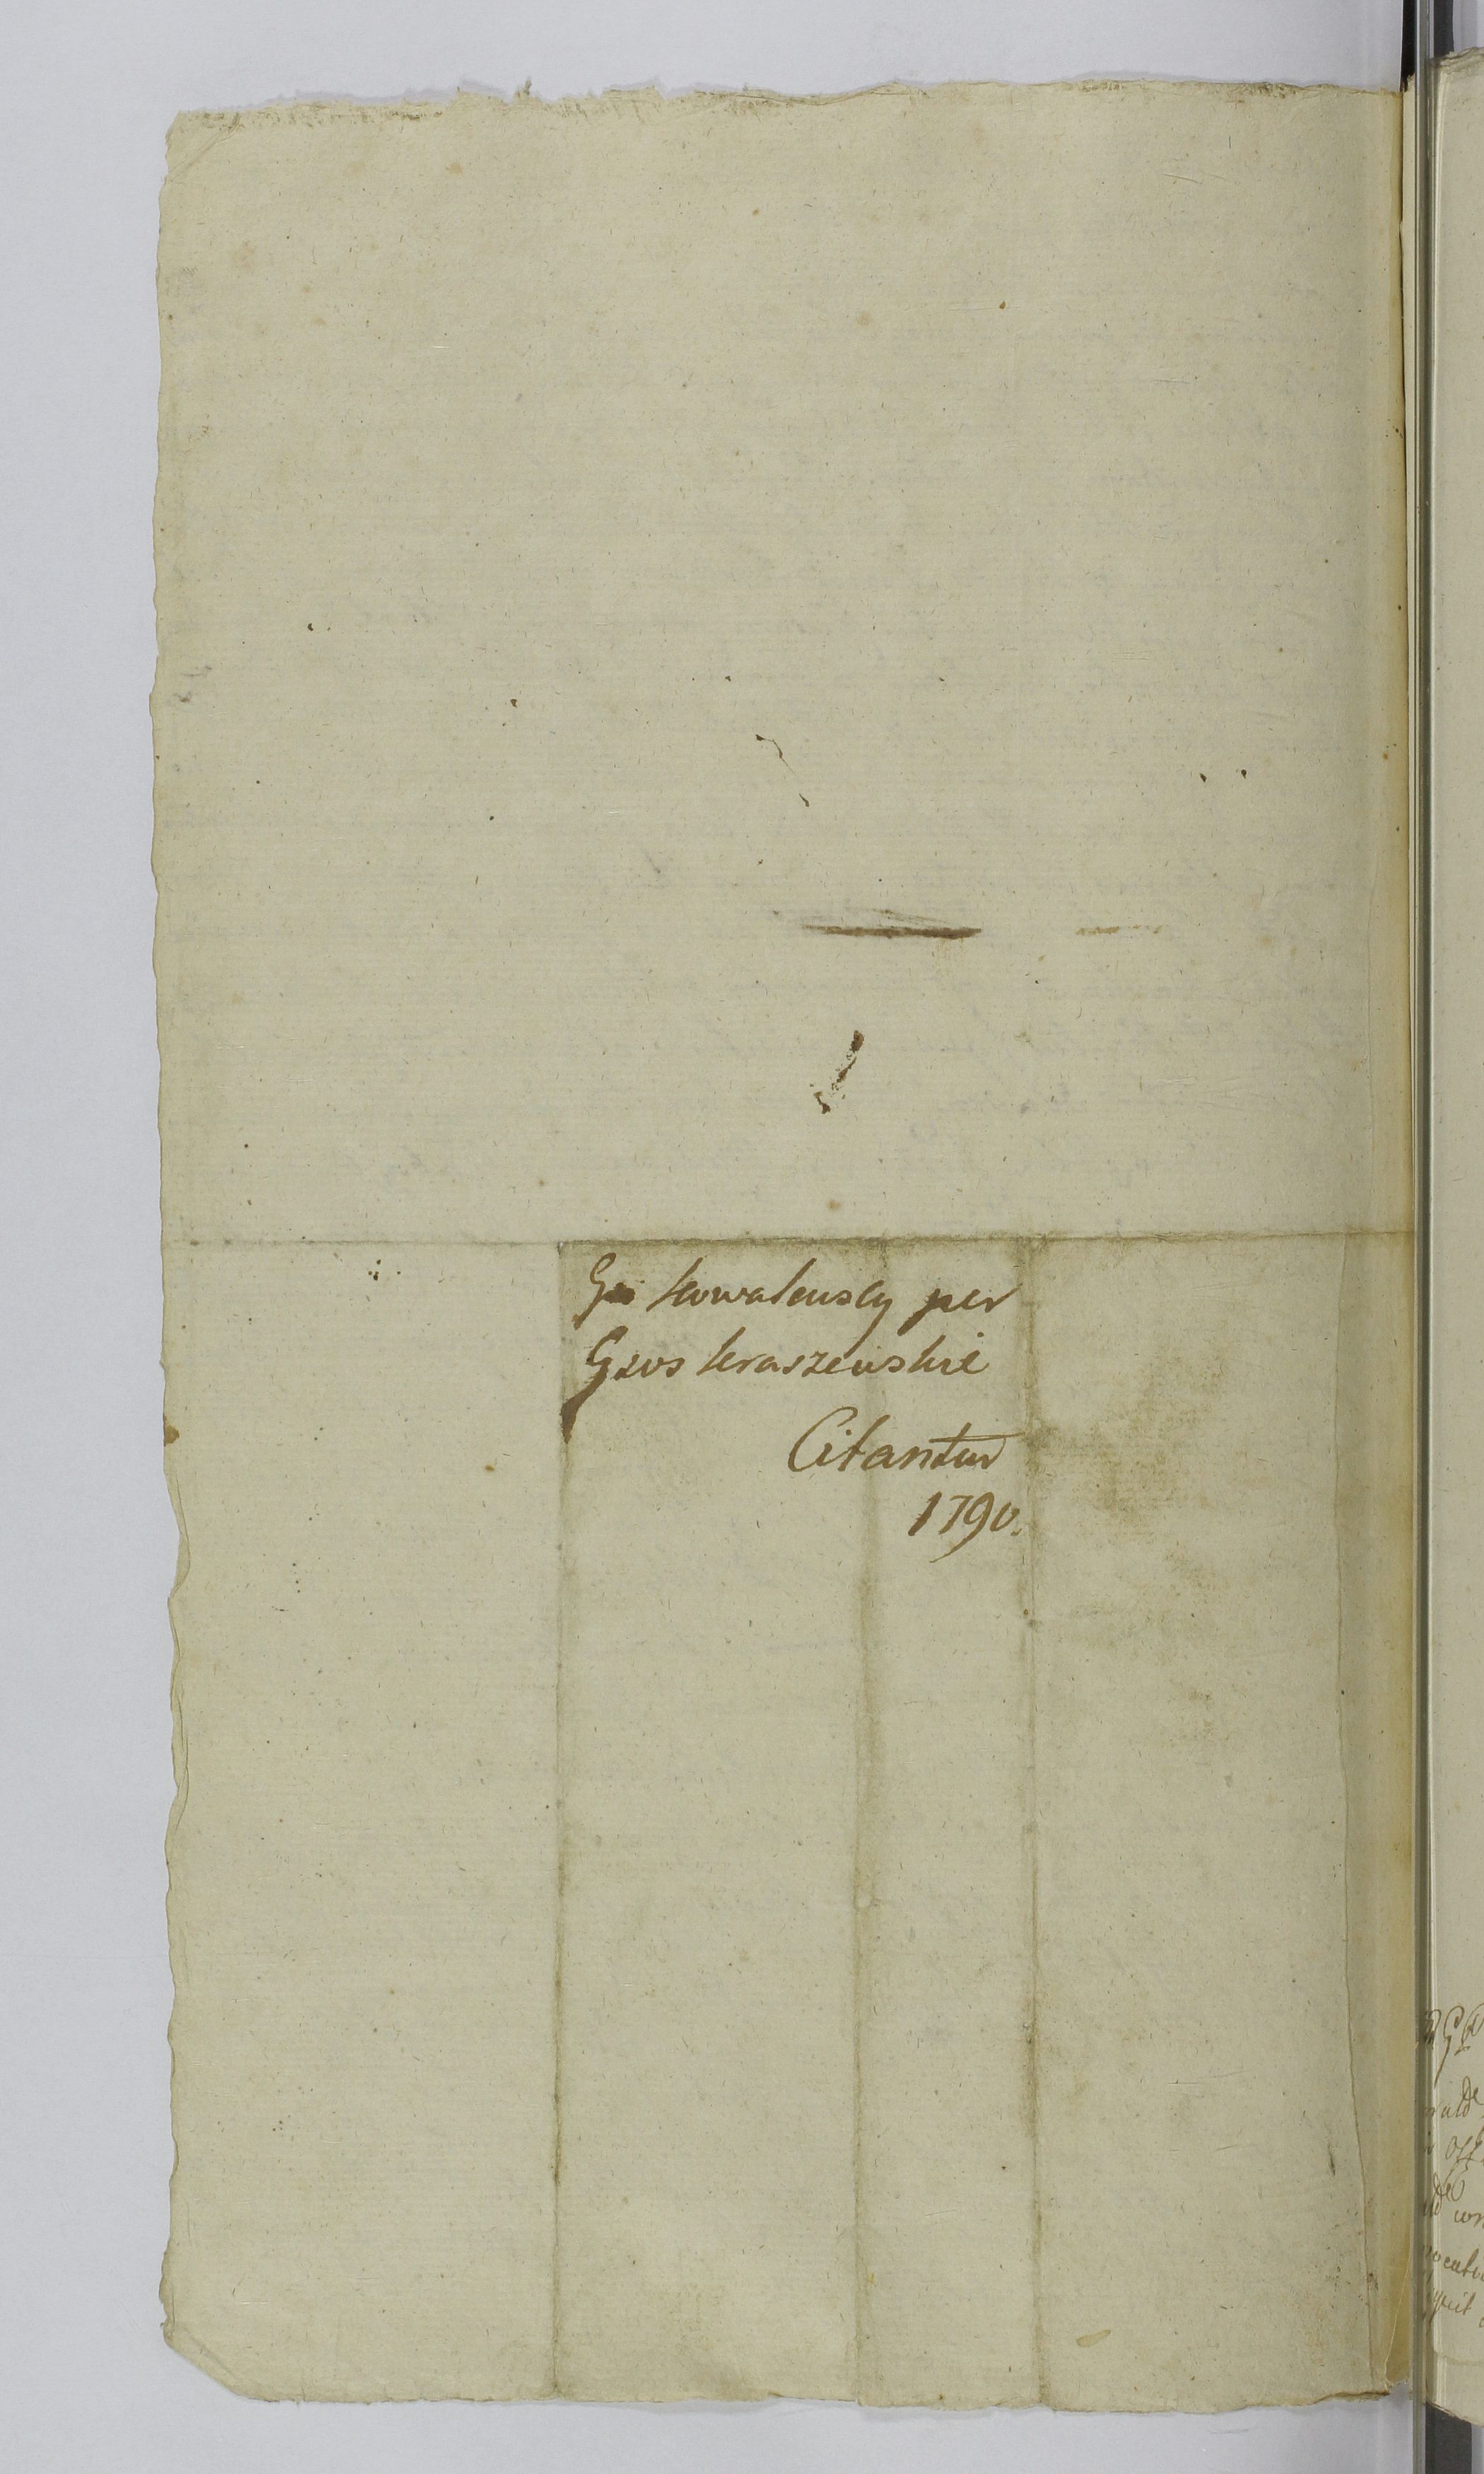 Gsi Kowalewscy per
Gsos Kraszewskie
Citantur
1790.